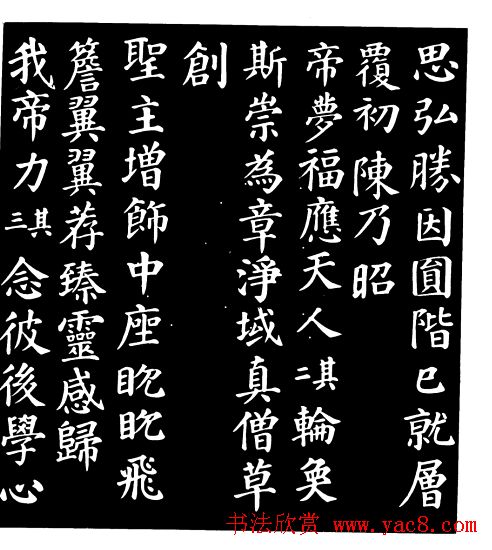 思弘勝因圎階已就層
覆初陳乃昭
帝夢福應天人其二輪奐
斯崇為章淨域真僧草
創
聖主增飾中座眈眈飛
簷翼翼荐臻靈感歸
我帝力其三念彼後學心
书法欣赏 www.yac8.com